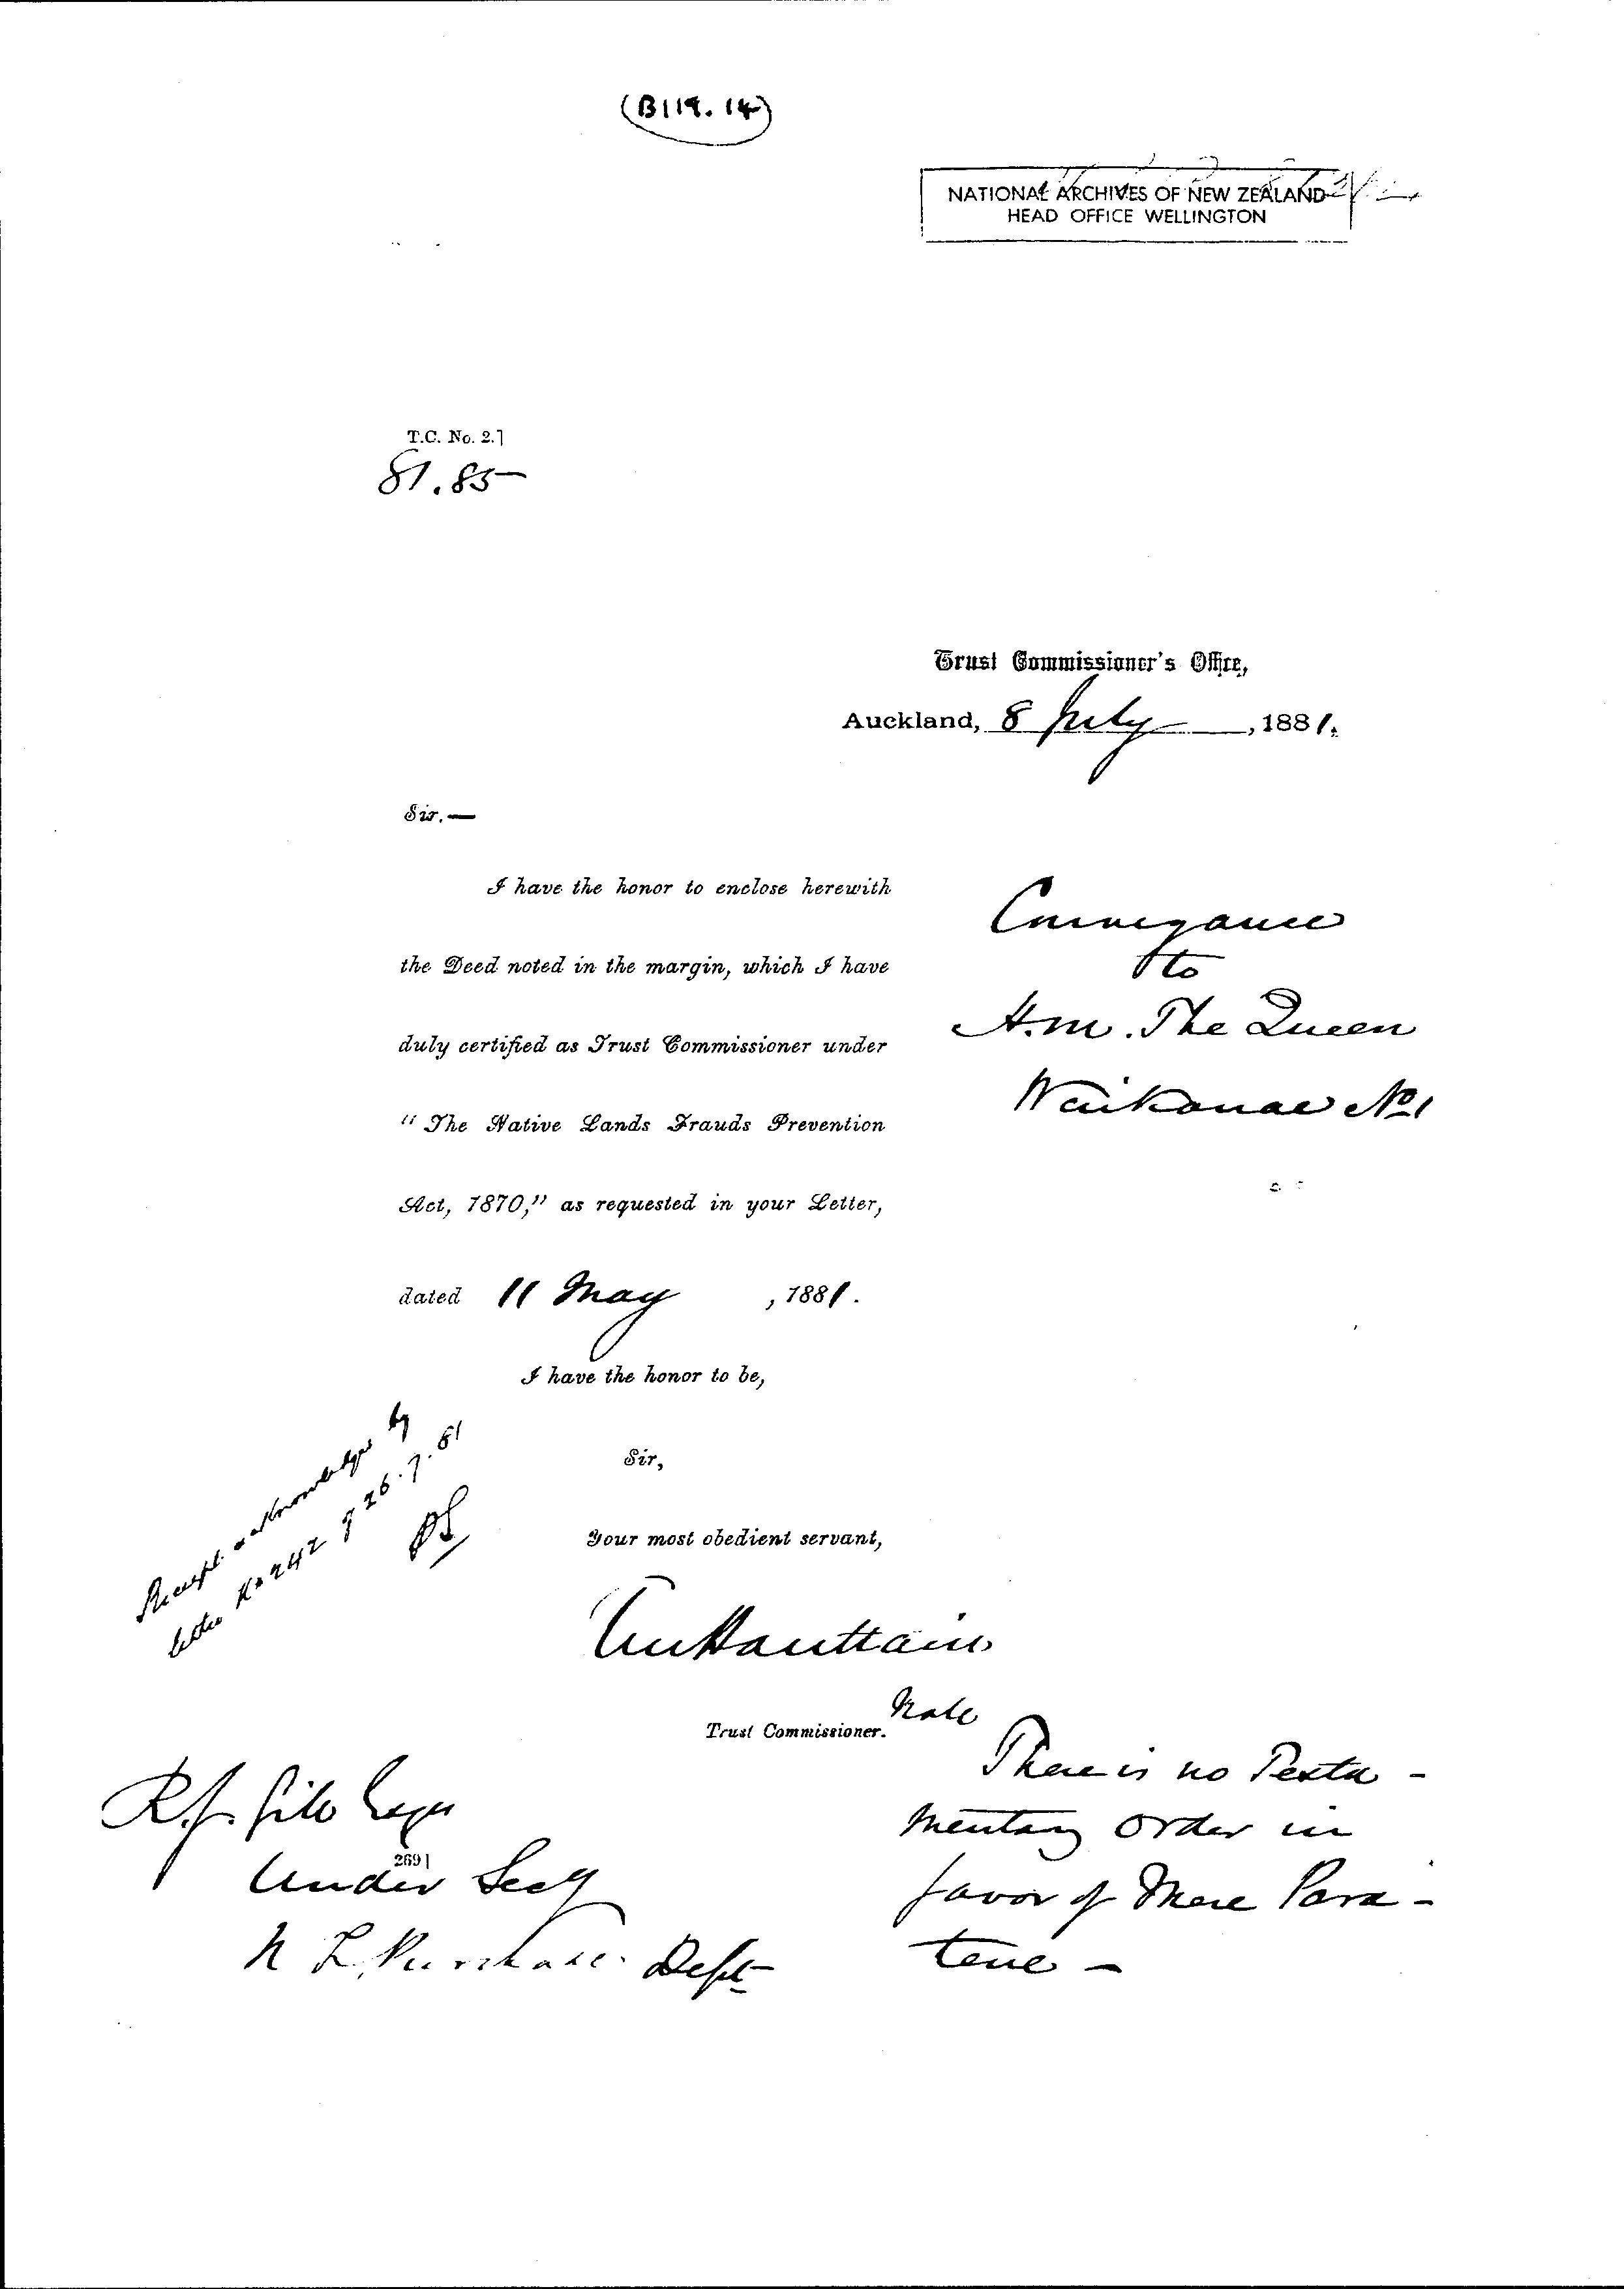 (B119.14)
NATIONAL ARCHIVES OF NEW ZEALAND
HEAD OFFICE WELLINGTON
T.C. No. 2.]
81.85
Trust Commissioner's Office,
Auckland, 8 July, 1881.
Sir,—
I have the honor to enclose herewith
the Deed noted in the margin, which I have
duly certified as Trust Commissioner under
"The Native Lands Frauds Prevention
Act, 1870," as requested in your Letter,
dated 11 May, 1881.
Conveyance
to
H.M. The Queen
Waikanae No 1
I have the honor to be,
Sir,
Your most obedient servant,
Trust Commissioner.
Receipt acknowledged by
letter No 242 of 26.7.81
R.J. Gill Esqr
2691
Under Secy
N L Purchase Dept
Note
There is no Testa-
mentary order in
favor of Mere Para-
tene -